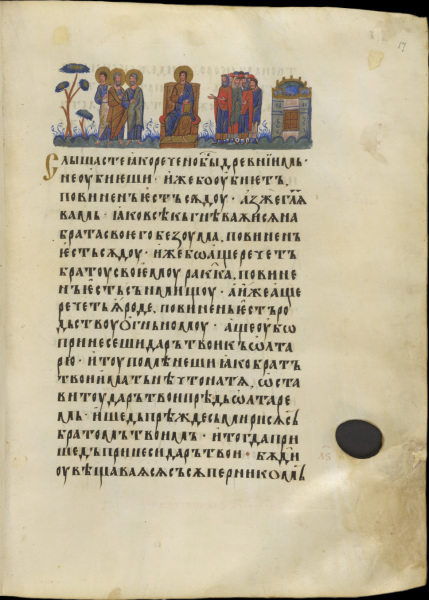 17
Слышасте іако речено бы древніимь ·
не оубиеши · иже бо оубиетъ,
повиненъ ѥстъ сѫдоу · азже глѧ
вамь · іако всѣкы гнѣваѫисѧ на
брата своиего без оума, повиненъ
ѥстъ сѫдоу · иже бѡ аще речетъ
братоу своиемоу ракка, повине
нъ ѥстъ сънмищоу · а иже аще
речетъ ѫроде, повиненъ ѥстъ ро
дьствоу огньномоу · аще оубѡ
принесеши даръ твои къ ѡлта
рю · и тоу помѣнеши іако братъ
твои имать нѣчто на тѧ, ѡста
ви тоу даръ твои прѣдъ ѡлтаре
мь · и шедь прѣжде съмирисѧ съ
братомъ твоимъ · и тогда при
шедъ принеси даръ твои · бѫди
оувѣщаваѧсѧ съ сѫперникомь